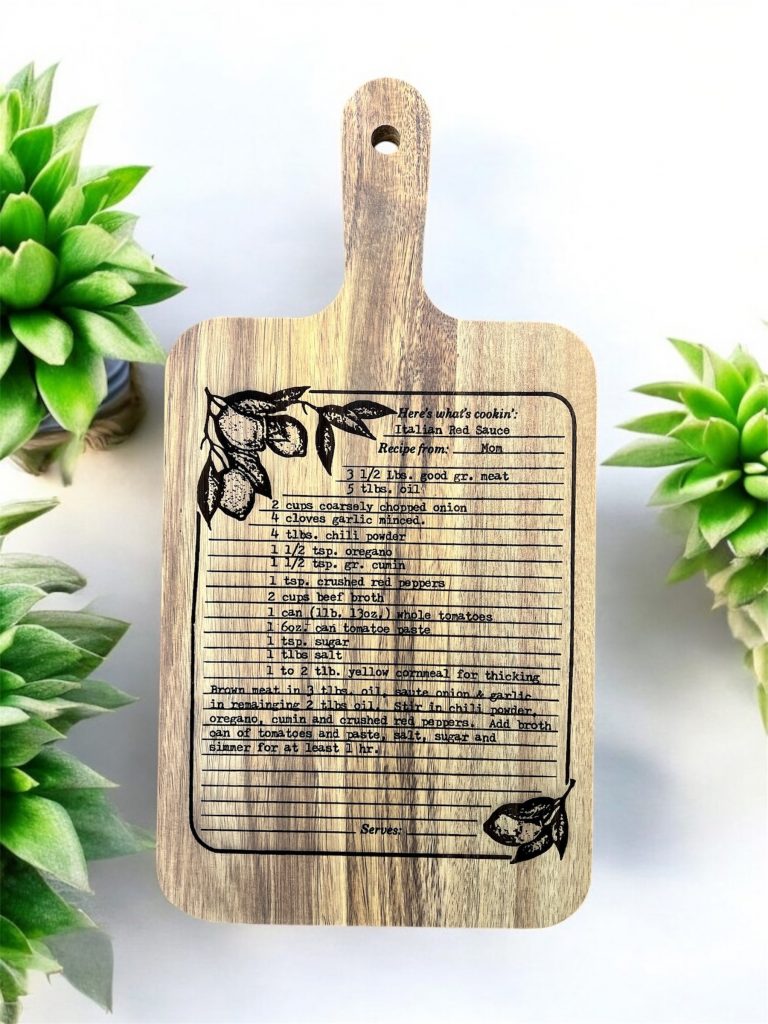 Here's what's cookin':
Italian Red Sauce
Recipe from: Mom
3 1/2 Lbs. good gr. meat
5 tlbs. oil
2 cups coarsely chopped onion
4 cloves garlic minced.
4 tlbs. chili powder
1 1/2 tsp. oregano
1 1/2 tsp. gr. cumin
1 tsp. crushed red peppers
2 cups beef broth
1 can (1lb. 13oz.) whole tomatoes
1 6oz. can tomatoe paste
1 tsp. sugar
1 tlbs salt
1 to 2 tlb. yellow cornmeal for thicking
Brown meat in 3 tlbs. oil, saute onion & garlic
in remainging 2 tlbs oil. Stir in chili powder,
oregano, cumin and crushed red peppers. Add broth
can of tomatoes and paste, salt, sugar and
simmer for at least 1 hr.
Serves: